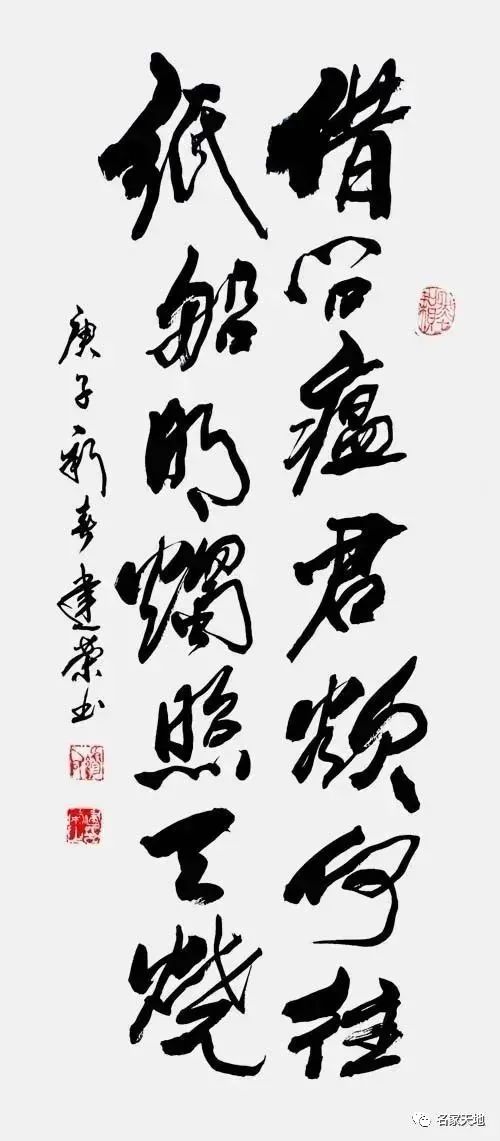 借问瘟君欲何往
纸船明燭照天烧
庚子新春建荣书
名家天地